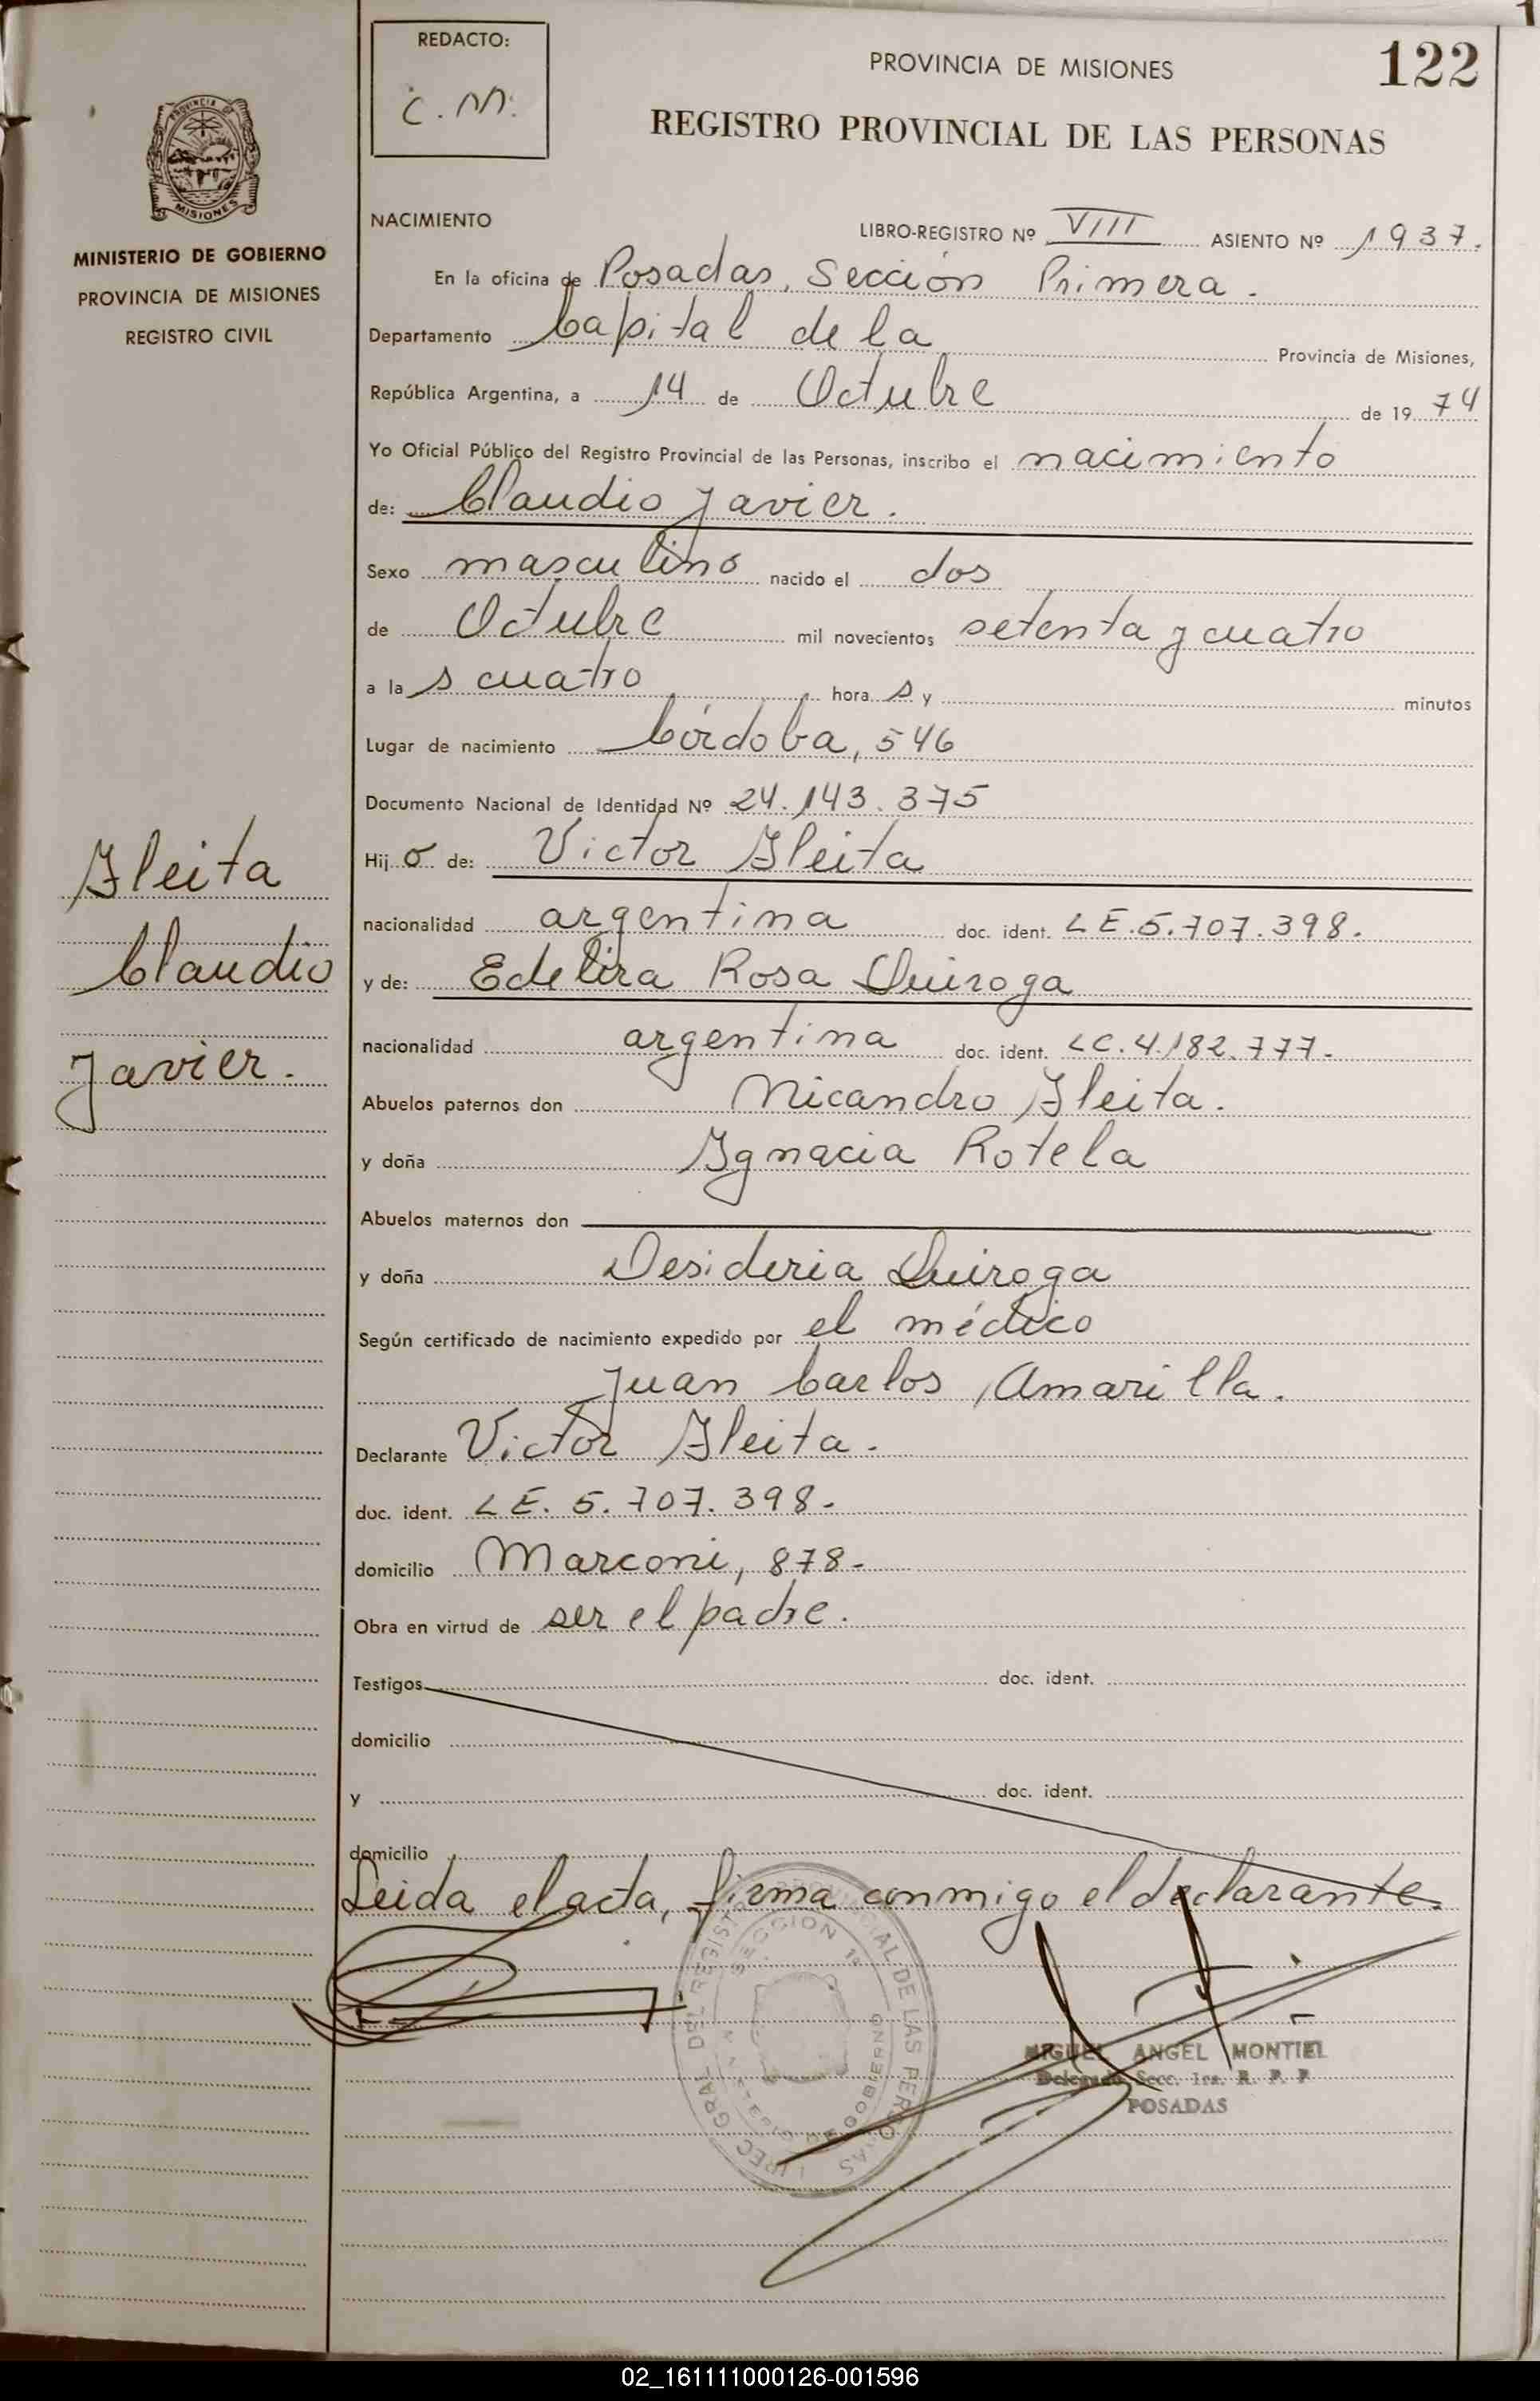 REDACTO:
C. M.
PROVINCIA DE MISIONES
122
REGISTRO PROVINCIAL DE LAS PERSONAS
MISIONES
MINISTERIO DE GOBIERNO
PROVINCIA DE MISIONES
REGISTRO CIVIL
NACIMIENTO
LIBRO-REGISTRO Nº VIII ASIENTO Nº 1937.
En la oficina de Posadas, Sección Primera.
Departamento Capital de la Provincia de Misiones,
República Argentina, a 14 de Octubre de 1974
Yo Oficial Público del Registro Provincial de las Personas, inscribo el nacimiento
de: Claudio Javier.
Sexo masculino nacido el dos
de Octubre mil novecientos setenta y cuatro
a las cuatro horas y minutos
Lugar de nacimiento Córdoba, 546
Documento Nacional de Identidad Nº 24.143.375
Hijo de: Victor Gleita
nacionalidad argentina doc. ident. LE.5.707.398.
y de: Edelira Rosa Quiroga
nacionalidad argentina doc. ident. LC.4.182.777.
Abuelos paternos don Nicandro Gleita.
y doña Ignacia Rotela
Abuelos maternos don
y doña Desideria Quiroga
Según certificado de nacimiento expedido por el médico
Juan Carlos Amarilla.
Declarante Victor Gleita.
doc. ident. LE. 5.707.398-
domicilio Marconi, 878-
Obra en virtud de ser el padre.
Testigos doc. ident.
domicilio
y doc. ident.
domicilio
Leida el acta, firma conmigo el declarante.
Gleita
Claudio
Javier.
SECCION 1a
DIREC GRAL DEL REGISTRO PROVINCIAL DE LAS PERSONAS
MINISTERIO DE GOBIERNO
MIGUEL ANGEL MONTIEL
Delegado Secc. 1ra. R. P. P
POSADAS
02_161111000126-001596